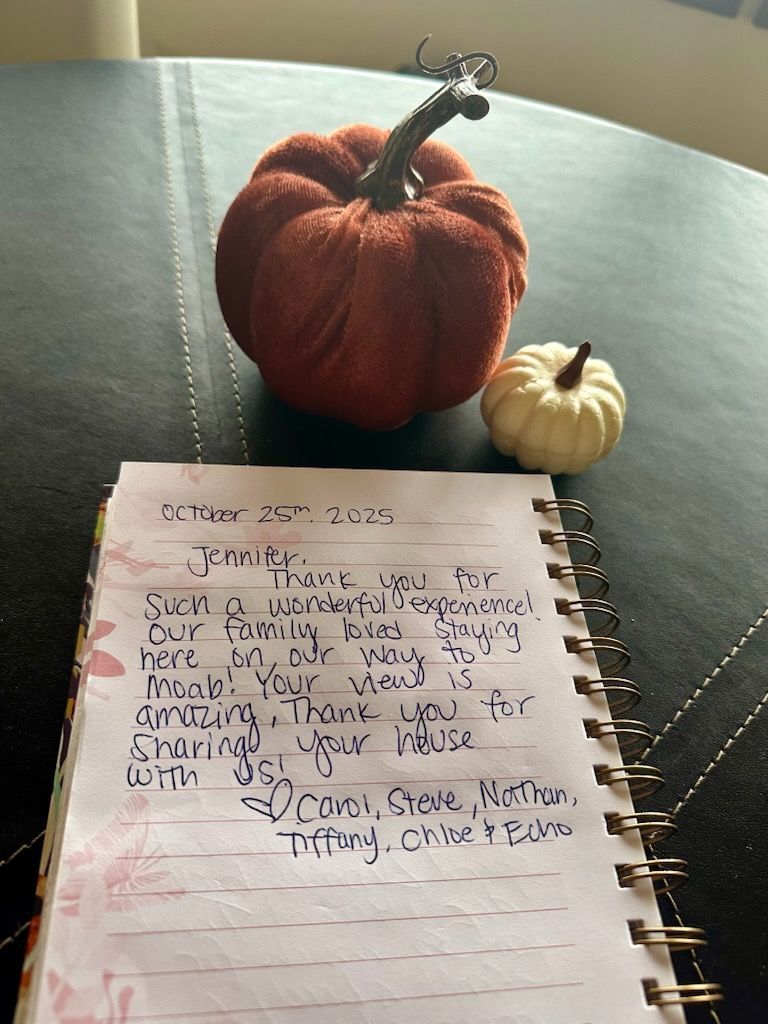 October 25th. 2025
Jennifer,
Thank you for
such a wonderful experience!
Our family loved staying
here on our way to
Moab! Your view is
amazing, Thank you for
Sharing your house
with us!
♡ Carol, Steve, Nathan,
Tiffany, Chloe & Echo